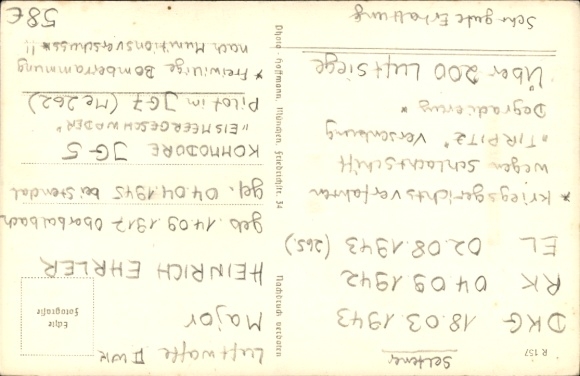 R 157
seltener
DKG 18.03.1943
RK 04.09.1942
EL 02.08.1943 (265.)
* Kriegsgerichtsverfahren
wegen Schlachtschiff
"TIRPITZ" Versenkung
Degradierung *
Über 200 Luftsiege
Sehr gute Erhaltung
Photo-Hoffmann, München, Friedrichstr. 34
Nachdruck verboten
Luftwaffe II WK
Major
HEINRICH EHRLER
Echte
Fotografie
geb. 14.09.1917 Oberbalbach
gef. 04.04.1945 bei Stendal
KOMMODORE JG-5
"EISMEERGESCHWADER"
Pilot im JG7 (Me 262)
* Freiwillige Bomberrammung
nach Munitionsverschuss*!!
58€